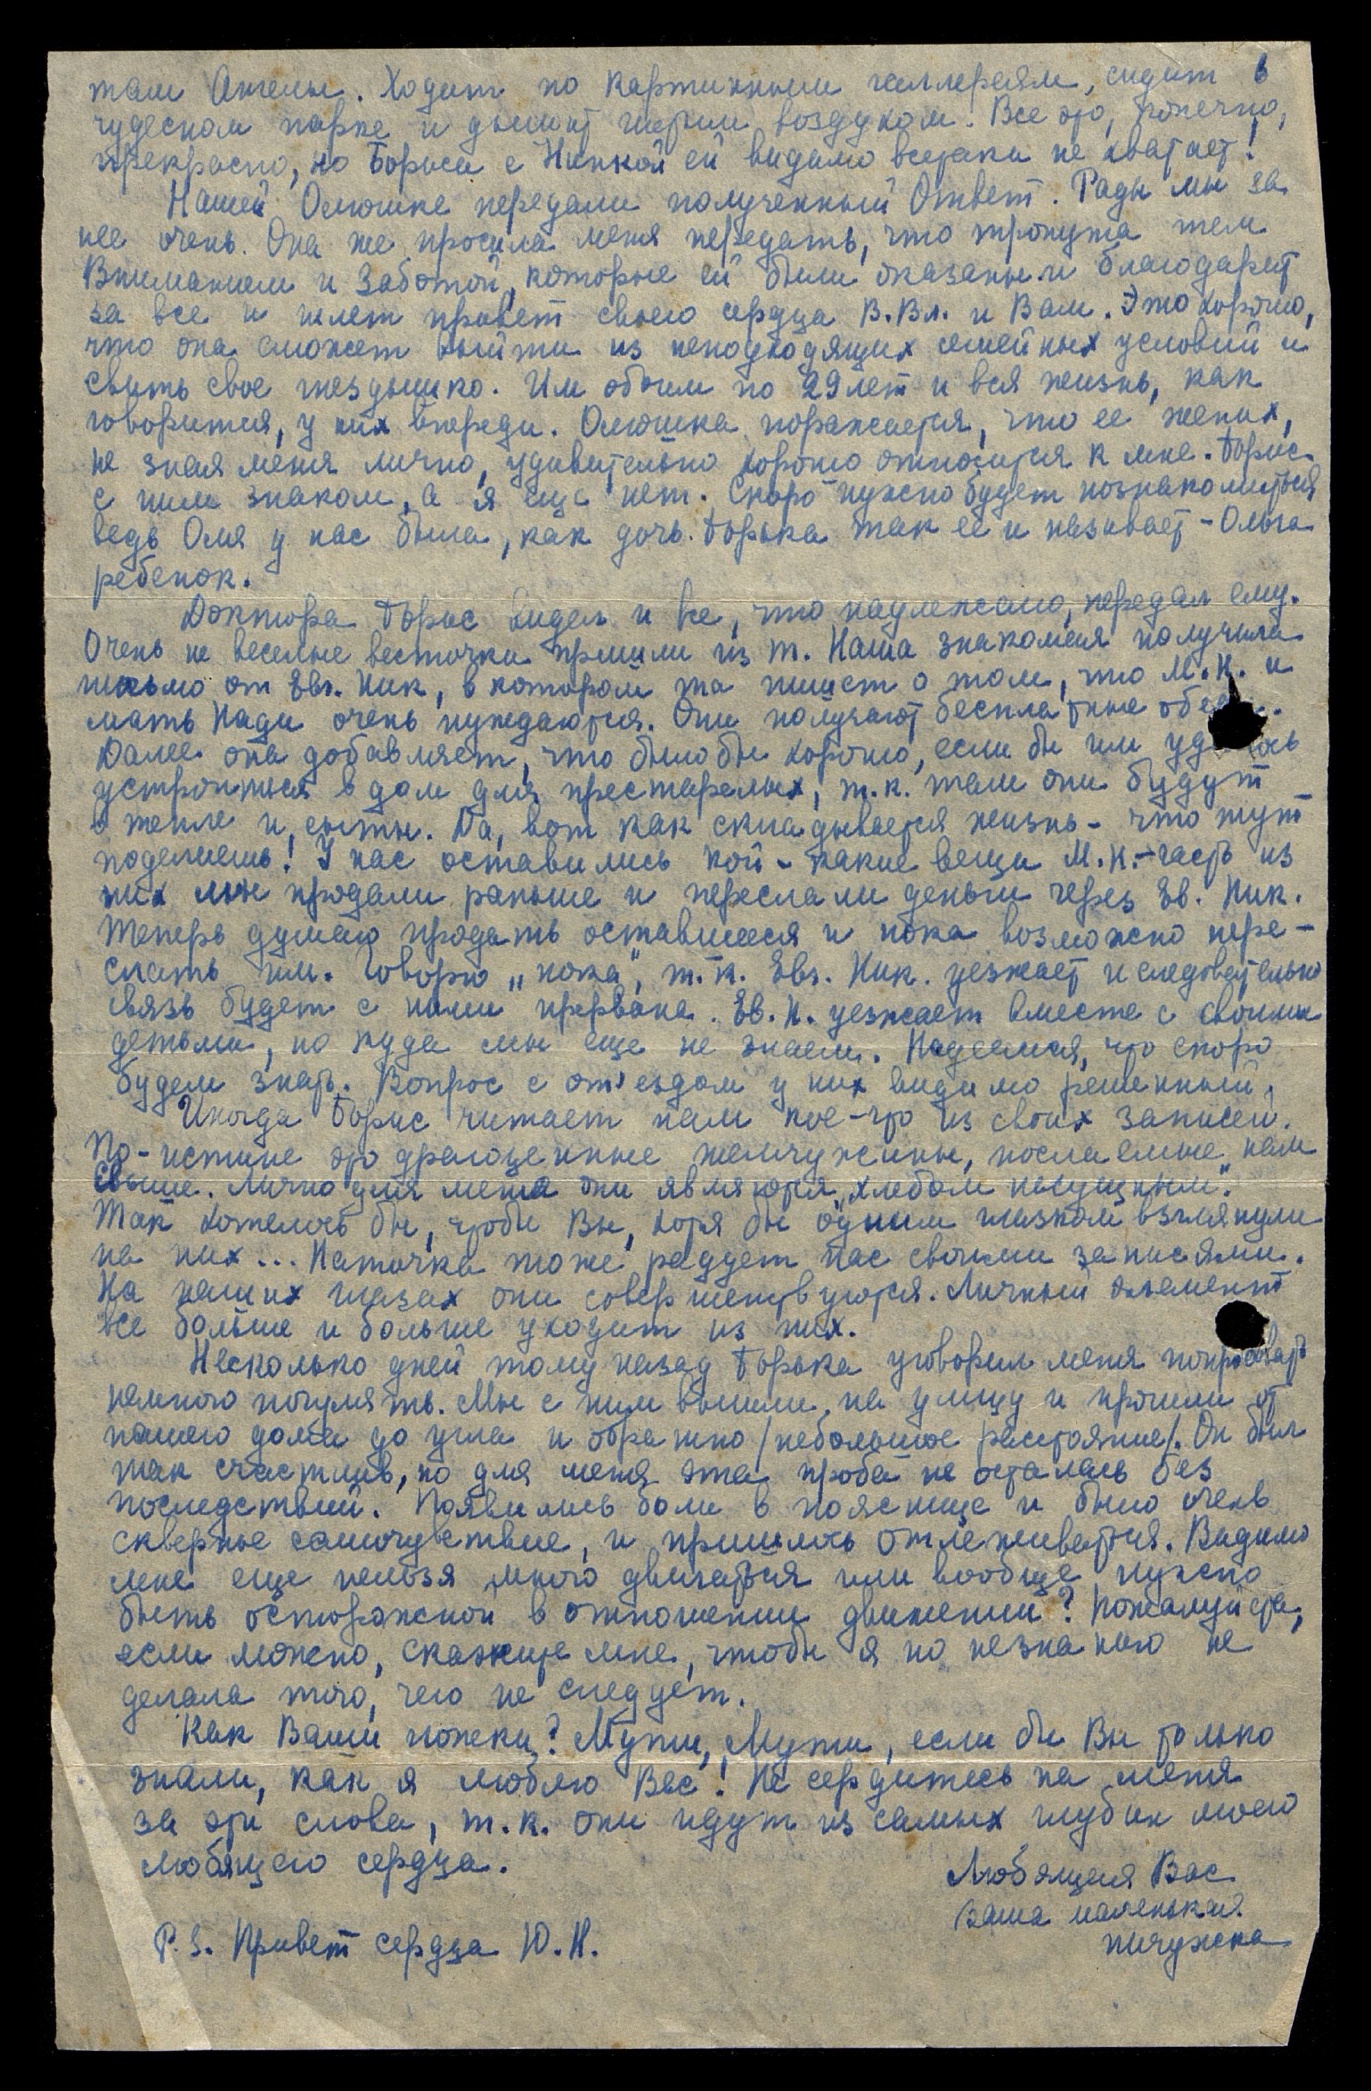 там Ангелы. Ходит по картинным галлереям, сидит в
чудесном парке и дышит этим воздухом. Все это, конечно,
прекрасно, но Бориса с Нинкой ей видимо всетаки не хватает!
Нашей Олюшке передали полученный Ответ. Рады мы за
нее очень. Она же просила меня передать, что тронута тем
Вниманием и Заботой, которые ей были оказаны и благодарит
за все и шлет привет своего сердца В.Вл. и Вам. Это хорошо,
что она сможет выйти из неподходящих семейных условий и
свить свое гнездышко. Им обоим по 29 лет и вся жизнь, как
говорится, у них впереди. Олюшка поражается, что ее жених,
не зная меня лично, удивительно хорошо относится к мне. Борис
с ним знаком, а я еще нет. Скоро нужно будет познакомиться
ведь Оля у нас была, как дочь. Борька так ее и называет - Ольга
ребенок.
Доктора Борис видел и все, что надлежало, передал ему.
Очень не веселые весточки пришли из Т. Наша знакомая получила
письмо от Евг. Ник, в котором та пишет о том, что М.Н. и
мать Нади очень нуждаются. Они получают бесплатные
Далее она добавляет, что было бы хорошо, если бы им
устроиться в дом для престарелых, т.к. там они будут
в тепле и сыты. Да, вот как складывается жизнь - что тут
поделаешь! У нас оставались кой-какие вещи М.Н. - часть из
них мы продали раньше и переслали деньги через Ев. Ник.
Теперь думаю продать оставшееся и пока возможно пере-
слать им. Говорю „пока", т.к. Евг. Ник. уезжает и следовательно
связь будет с ними прервана. Ев. Н. уезжает вместе с своими
детьми, но куда мы еще не знаем. Надеемся, что скоро
будем знать. Вопрос с от'ездом у них видимо решенный.
Иногда Борис читает нам кое-что из своих записей.
По-истине это драгоценные жемчужины, посылаемые нам
Свыше. Лично для меня они являются „хлебом насущным".
Так хотелось бы, чтобы Вы, хотя бы одним глазком взглянули
на них... Наточка тоже радует нас своими записями.
На наших глазах они совершенствуются. Личный элемент
все больше и больше уходит из них.
Несколько дней тому назад Борька уговорил меня попробовать
немного погулять. Мы с ним вышли на улицу и прошли от
нашего дома до угла и обратно /небольшое расстояние/. Он был
так счастлив, но для меня эта проба не осталась без
последствий. Появились боли в пояснице и было очень
скверное самочувствие, и пришлось отлеживаться. Видимо
мне еще нельзя много двигаться или вообще нужно
быть осторожной в отношении движений? Пожалуйста,
если можно, скажите мне, чтобы я по незнанию не
делала того, чего не следует.
Как Ваши ножки? Мути, Мути, если бы Вы только
знали, как я люблю Вас! Не сердитесь на меня
за эти слова, т.к. они идут из самых глубин моего
любящего сердца.
Любящая Вас
Ваша маленькая
пичужка
P.S. Привет сердца Ю.Н.